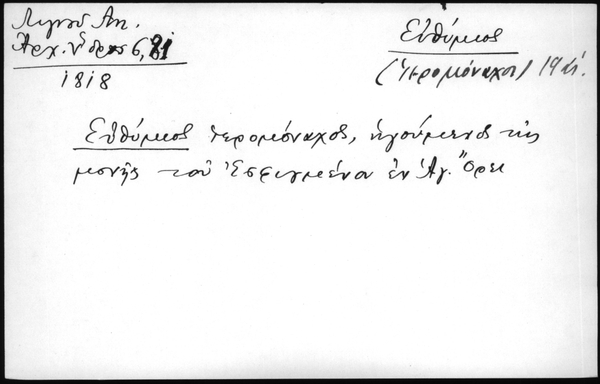 Λιγνοῦ Ἀπ.
Ἀρχ. Ὕδρας 6, 81
1818
Εὐθύμιος
(Ἱερομόναχος) 19
Εὐθύμιος ἱερομόναχος, ἡγούμενος τῆς
μονῆς τοῦ Ἐσφιγμένου ἐν Ἁγ. Ὄρει